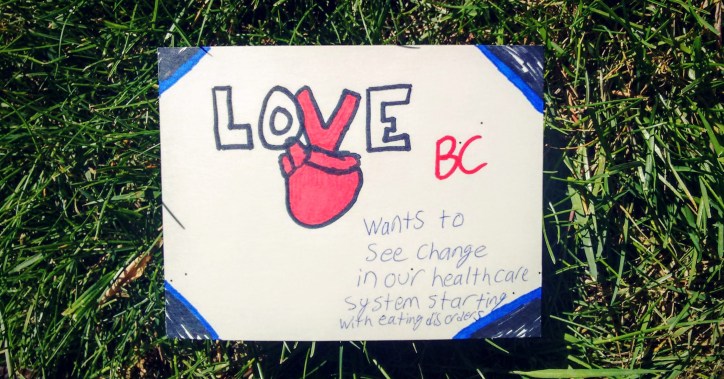 LOVE
BC
Wants to
See change
in our healthcare
system starting
with eating disorders